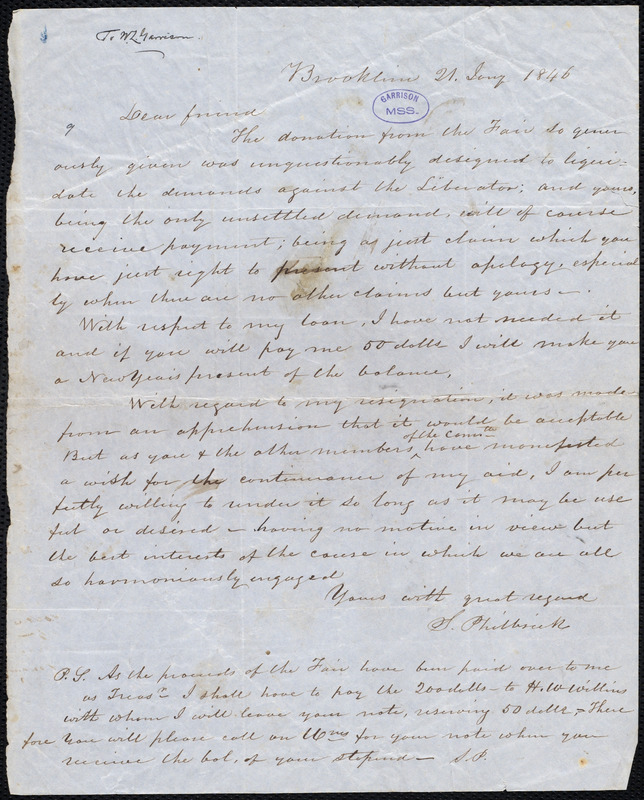 To W.L. Garrison.
Brookline 21. Jany 1846
GARRISON
MSS.
9
Dear friend
The donation from the Fair so gener
ously given was unquestionably designed to liqui-
date the demands against the Liberator; and yours,
being the only unsettled demand, will of course
receive payment; being as just claim which you
have just right to present without apology, especial
ly when there are no other claims but yours —.
With respect to my loan, I have not needed it
and if you will pay me 50 dolls I will make you
a New Years present of the balance,
With regard to my resignation, it was made
from an apprehension that it would be acceptable
of the Comm.ee
But as you & the other members, have manifested
a wish for the continuance of my aid, I am per
fectly willing to render it so long as it may be use
ful or desired — having no motive in view but
the best interests of the cause in which we are all
so harmoniously engaged
Yours with great regard
S. Philbrick
P.S. As the proceeds of the Fair have been paid over to me
as Treasr I shall have to pay the 200 dolls — to H. W. Williams
with whom I will leave your note, reserving 50 dolls, — There
fore You will please call on Wms for your note when you
receive the bal. of your stipend — S.P.